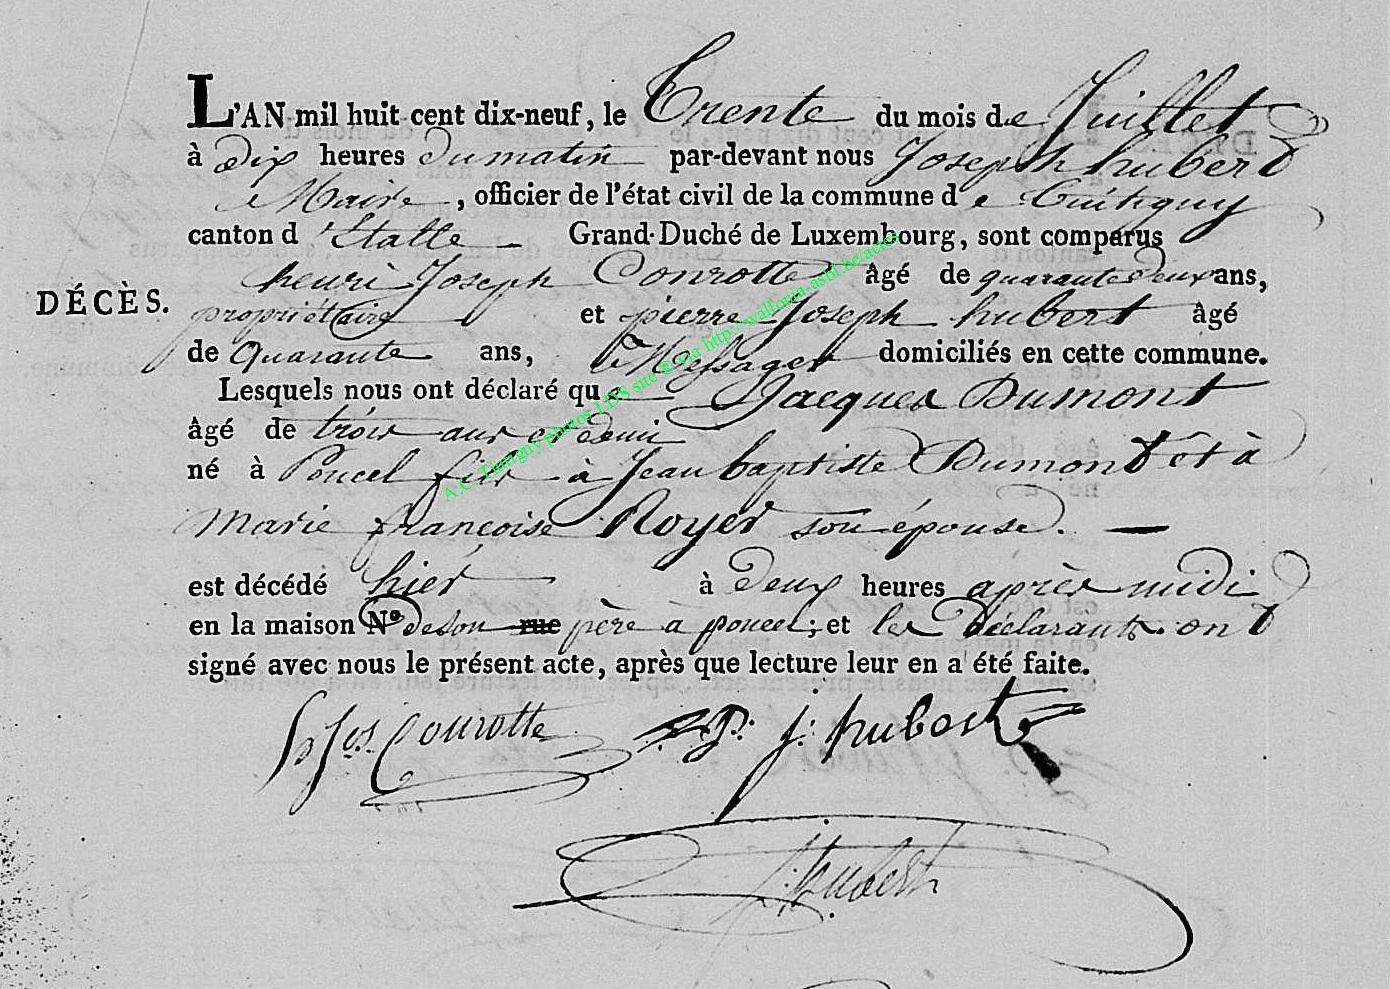 L'AN mil huit cent dix-neuf, le Trente du mois de Juillet
à dix heures du matin par-devant nous Joseph hubert
Maire, officier de l'état civil de la commune de Tintigny
canton d'Etalle Grand-Duché de Luxembourg, sont comparus
henri Joseph Conrotte âgé de quarante deux ans,
DÉCÈS.
propriétaire et pierre Joseph hubert âgé
de Quarante ans, Messager domiciliés en cette commune.
Lesquels nous ont déclaré que Jacques Dumont
âgé de trois ans et demi
né à Poncel fils à Jean baptiste Dumont et à
Marie françoise Royer son épouse.
est décédé hier à deux heures après midi
en la maison N° de son rue père à poncel; et les déclarants ont
signé avec nous le présent acte, après que lecture leur en a été faite.
h Jos. Conrotte P. j. hubert
J. hubert
A.C. Tintigny photos LDS site © via http://wallonia-asbl.be/actes